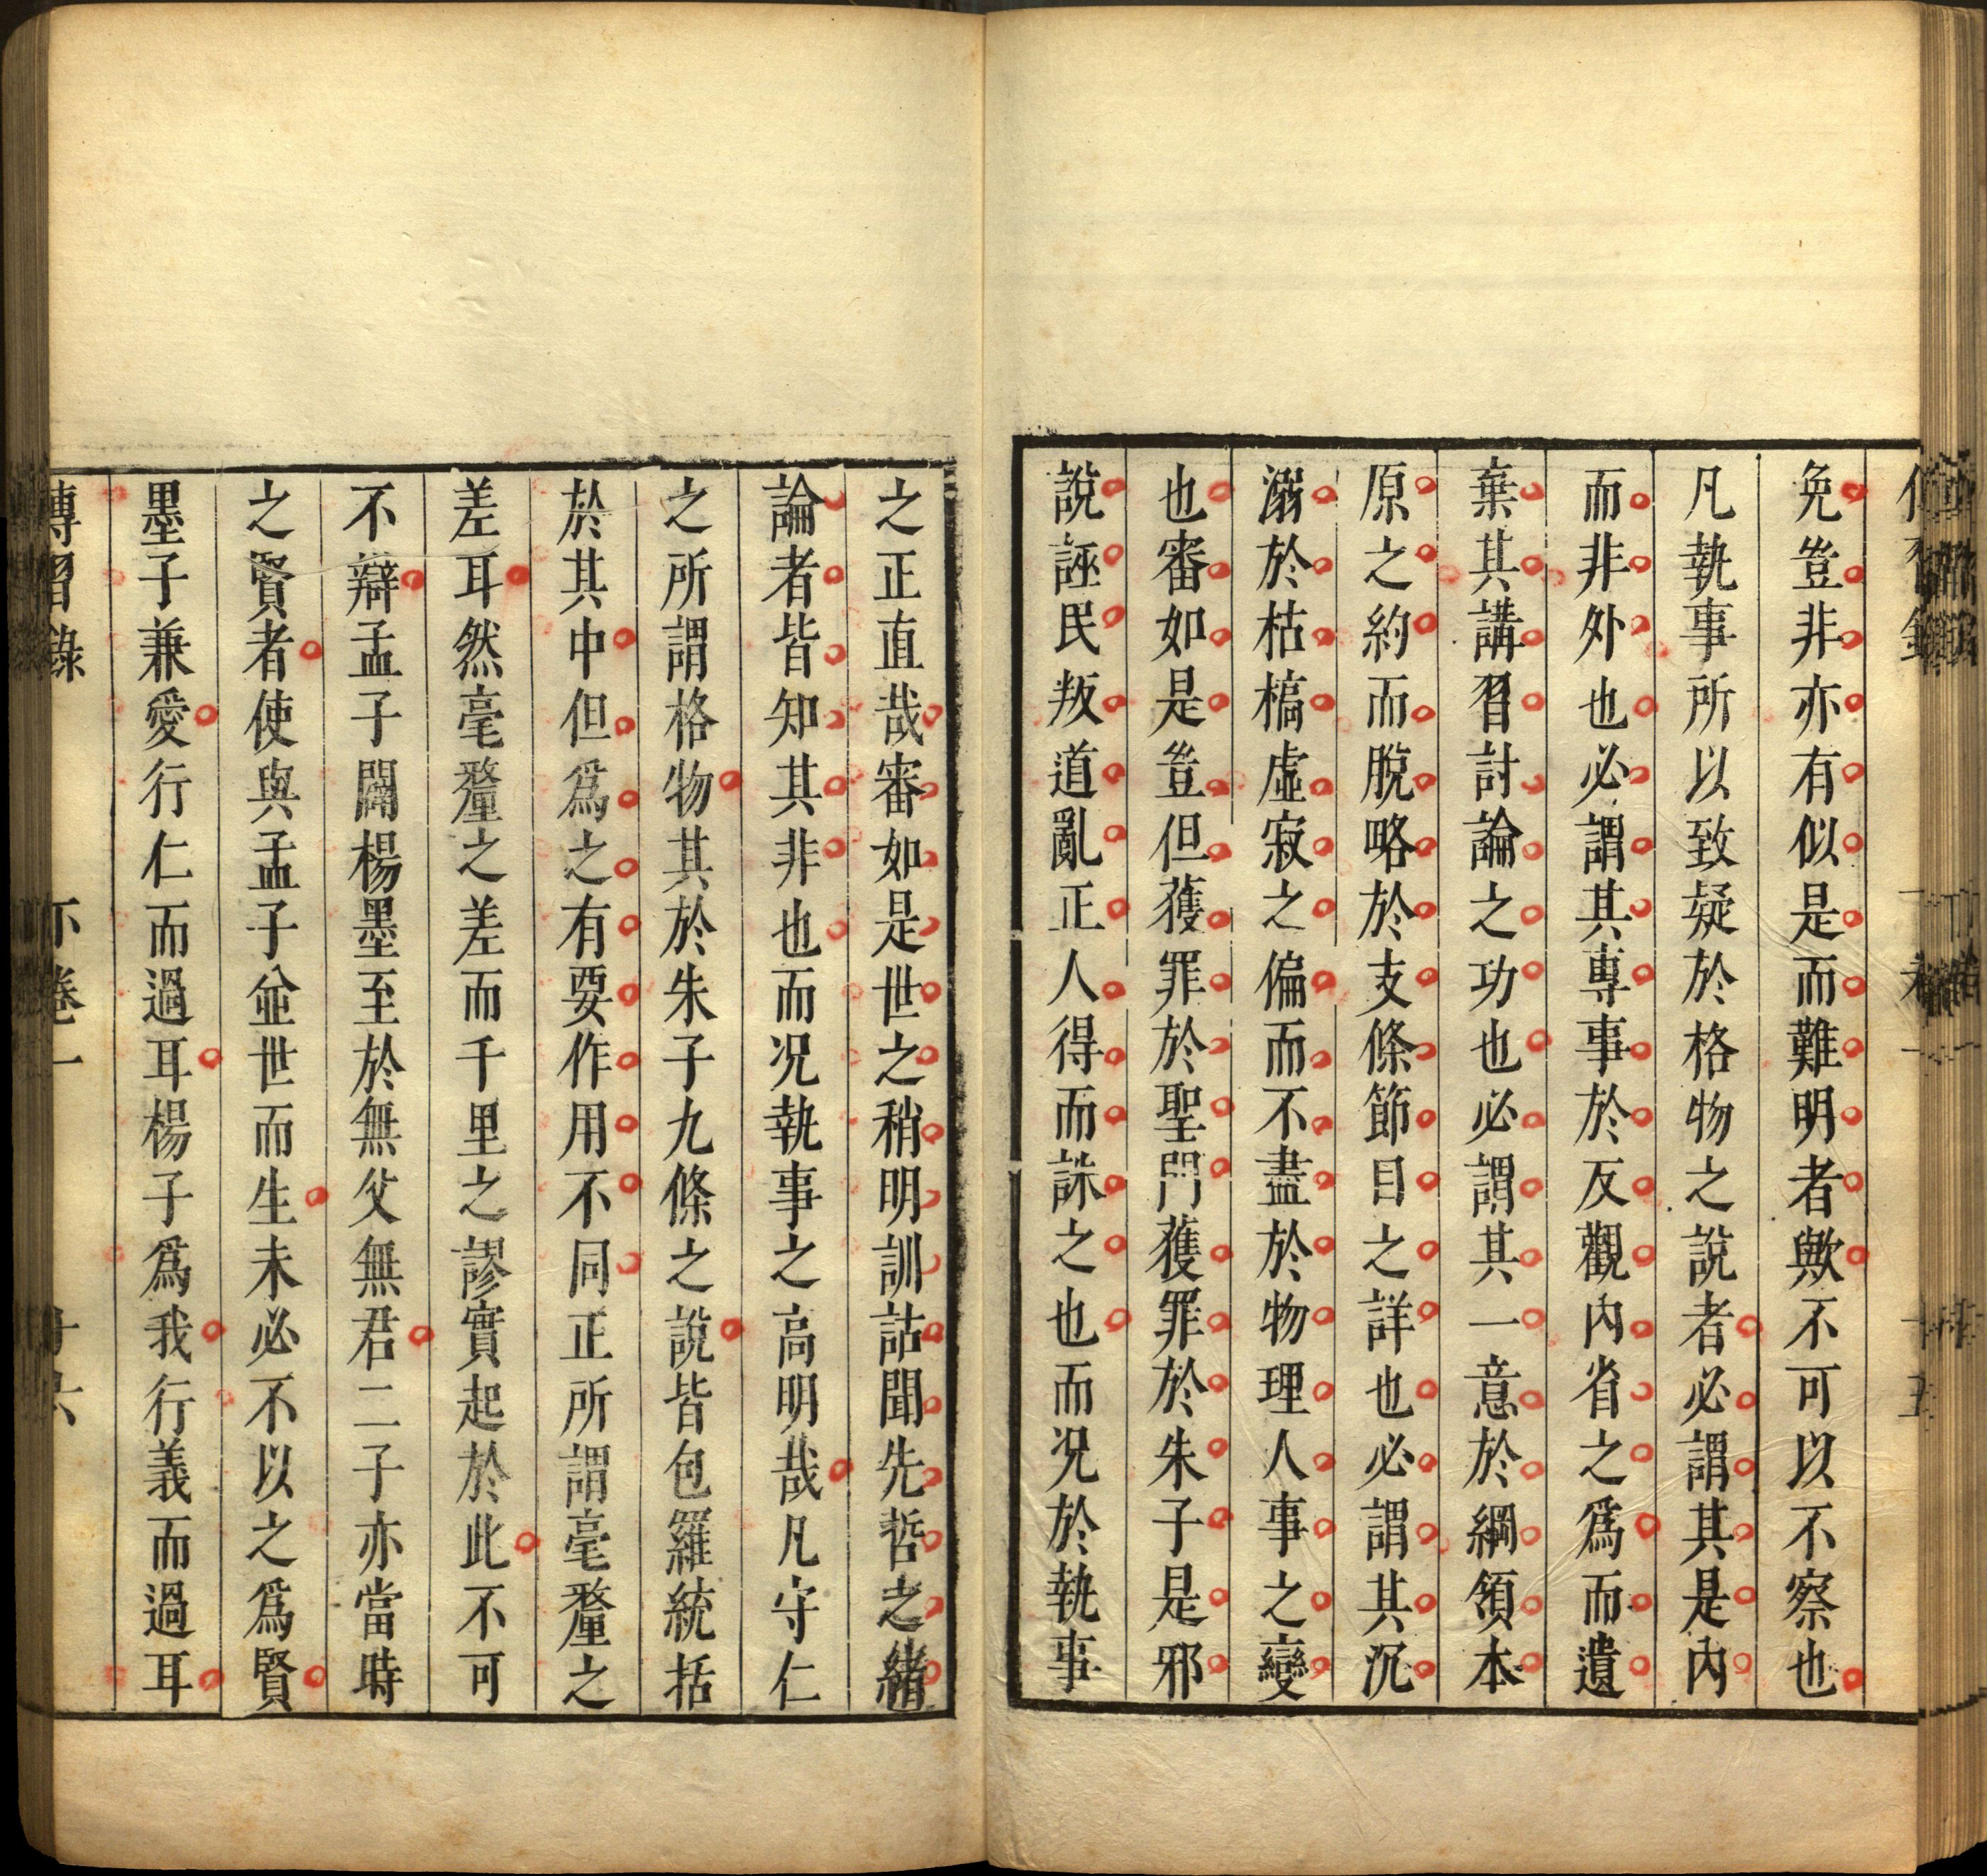 免豈非亦有似是而難明者歟不可以不察也
凡執事所以致疑於格物之說者必謂其是內
而非外也必謂其專事於反觀內省之爲而遺
棄其講習討論之功也必謂其一意於綱領本
原之約而脫略於支條節目之詳也必謂其沉
溺於枯槁虛寂之偏而不盡於物理人事之變
也審如是豈但獲罪於聖門獲罪於朱子是邪
說誣民叛道亂正人得而誅之也而况於執事
之正直哉審如是世之稍明訓詁聞先哲之緒
論者皆知其非也而况執事之高明哉凡守仁
之所謂格物其於朱子九條之說皆包羅統括
於其中但爲之有要作用不同正所謂毫釐之
差耳然毫釐之差而千里之謬實起於此不可
不辯孟子闢楊墨至於無父無君二子亦當時
之賢者使與孟子並世而生未必不以之爲賢
墨子兼愛行仁而過耳楊子爲我行義而過耳
傳習錄 卷一